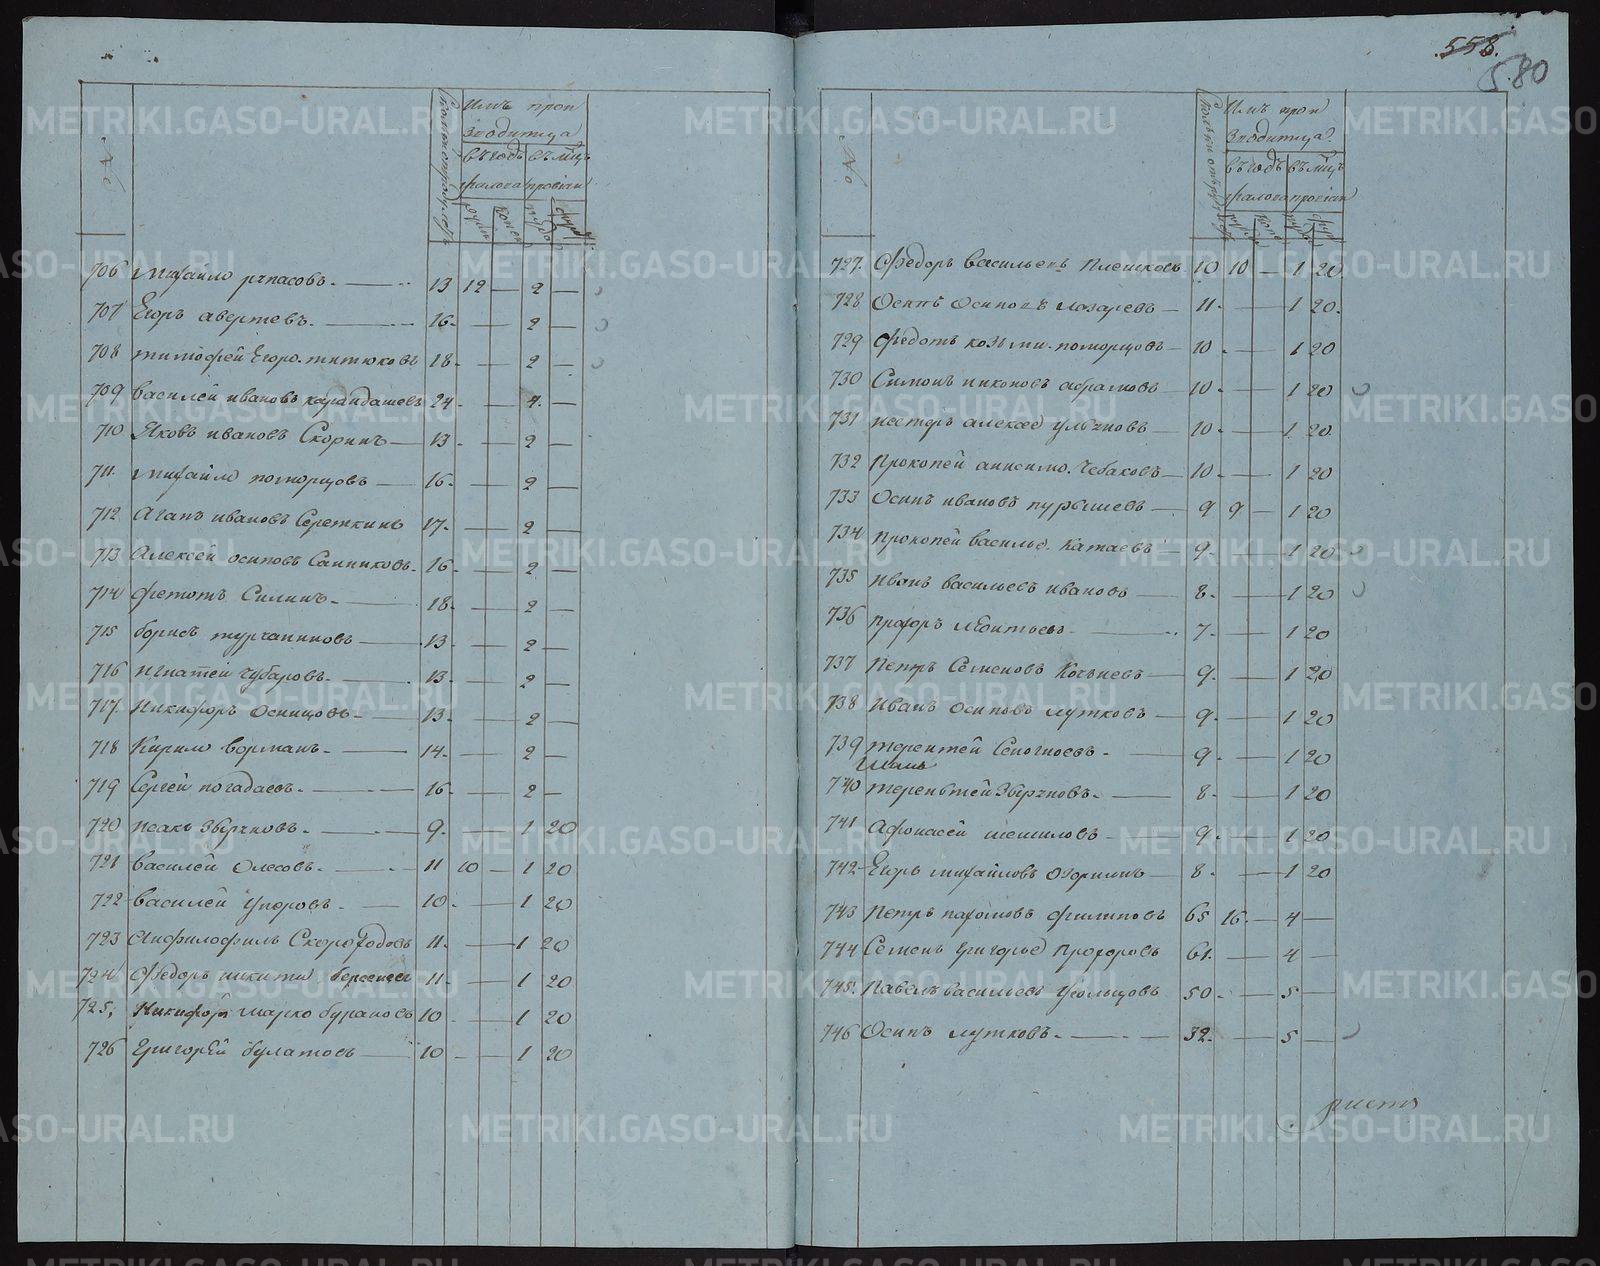 558.
580
№
Имъ прои
зводитца
въ годъ въ мцъ
жалова провіан
706 михаило рупасовъ. 13 12 — 2 —
707 Егоръ авертевъ. 16. — 2 —
708 тимофей Егоро. титюковъ 18. — 2 —
709 василей ивановъ карандашевъ 24. — 4. —
710 Яковъ ивановъ Скоринъ 13 — 2 —
711. михаило поморцовъ 16. — 2 —
712 Агапъ ивановъ Сереткинъ 17. — 2 —
713 Алексей осиповъ Санниковъ. 16. — 2 —
714 Фетотъ Силинъ. 18. — 2 —
715 борисъ турчаниновъ 13. — 2 —
716 игнатей чубаровъ. 13. — 2 —
717. Никифоръ Осинцовъ. 13. — 2 —
718 Кирило ворманъ. 14. — 2 —
719 Сергей погадаевъ. 16. — 2 —
720 исакъ Зверчковъ. 9. — 1 20
721 василей Олесовъ. 11 10 — 1 20
722 василей Упоровъ. 10. — 1 20
723 Анфилофилъ Скороходовъ 11. — 1 20
724 Федоръ никити берсенев 11. — 1 20
725, Никифор марко бурановъ 10 — 1 20
726 Григорей булатовъ 10 — 1 20
№
Имъ прои
зводитца.
въ годъ въ мцъ
жалова провіан
727. Федоръ васильевъ Плешковъ. 10 10 — 1 20
728 Осипъ Осиповъ лазаревъ 11. — 1 20.
729 Федотъ козьми. поморцовъ 10 — 1 20
730 Симонъ никоновъ абрамовъ 10. — 1 20
731 нестеръ алексее улычновъ 10. — 1. 20
732 Прокопей анисимо. Чебаковъ 10. — 1 20
733 Осипъ ивановъ пурышевъ 9 9 — 1 20
734 Прокопей василье. Катаевъ 9. — 1 20
735 иванъ васильевъ ивановъ 8. — 1 20
736 прохоръ леонтьевъ. 7. — 1 20
737 петръ Семеновъ Кочьневъ 9. — 1 20
738 иванъ осиповъ лутковъ 9. — 1 20
739 терентей Сеногноевъ. 9. — 1 20
740 терентей Зверчковъ. 8. — 1 20
741 Афонасей шешиловъ. 9. — 1 20
742 Егоръ михайловъ Озорнинъ 8. — 1 20
743 Петръ пахомовъ Филиповъ 65 16. — 4 —
744 Семенъ Григорье Прохоровъ 61. — 4 —
745. Павелъ васильевъ Угольцовъ 50. — 5 —
746 Осипъ лутковъ. 32. — 5 —
METRIKI.GASO-URAL.RU